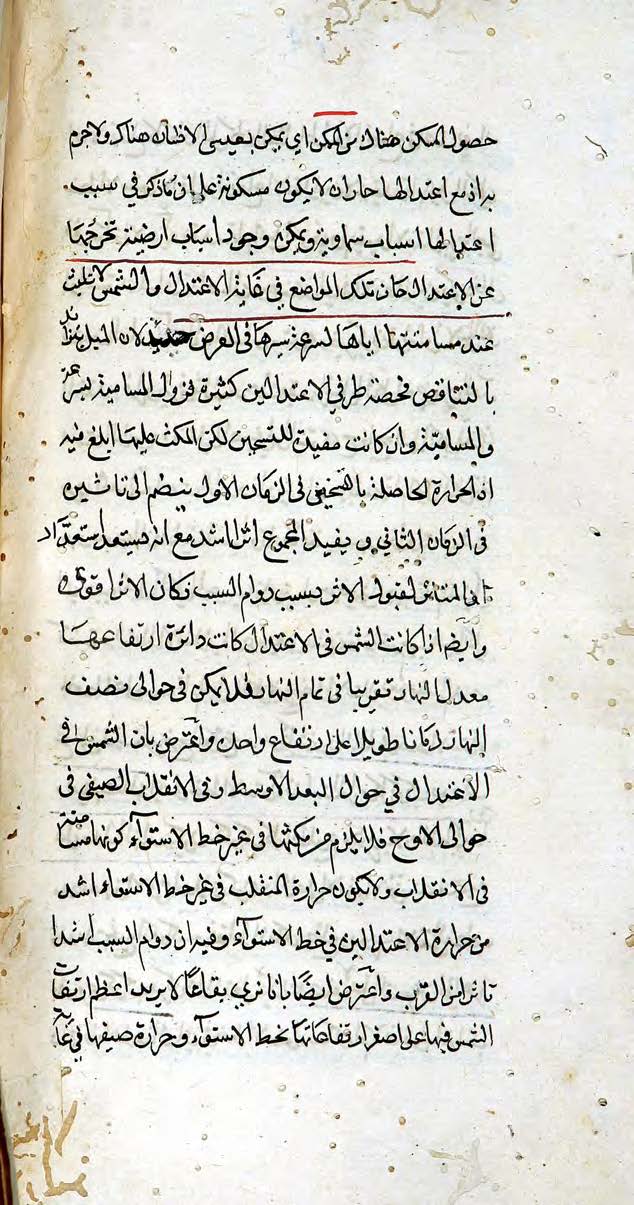 حصول المسكن هناك من الممكن اي يمكن تعيش الانسان هناك ولا جرم
اعتدالها جاز ان لا يكون مسكونة على ان ما ذكر في سبب
اعتدالها اسباب سماوية ويمكن وجود اسباب ارضية تخرجها
عن الاعتدال حال تلك المواضع في غاية الاعتدال والشمس لا تلبث
عند مسامتتها اياها لسرعة سيرها في العرض لان الميل
بالتناقص فحصة طرفي الاعتدالين كثيرة فزوال المسامتة بسرعة
والمسامتة وان كانت مفيدة للتسخين لكن المكث عليها ابلغ فيه
اذ الحرارة الحاصلة بالتسخين في الزمان الاول ينضم الى تاثيره
في الزمان الثاني ويفيد المجموع اثرا اشد مع انه يستعد استعدادا
المتاثر لقبول الاثر بسبب دوام السبب فكان الاثر اقوى
وايضا اذا كانت الشمس في الاعتدال كانت دائرة ارتفاعها
معدل النهار تقريبا في تمام النهار فلا يكن في حوالى نصف
النهار زمانا طويلا على ارتفاع واحد واعترض بان الشمس في
الاعتدال في حوال البعد الاوسط وفي الانقلاب الصيفي في
حوالى الاوج فلا يلزم من مكثها في غير خط الاستوآء كونها مسامتة
في الانقلاب ولا يكون حرارة المنقلب في غير خط الاستواء اشد
من حرارة الاعتدالين في خط الاستوآء وفيه ان دوام السبب اشد
تاثيرا من القرب واعترض ايضًا بانا نرى بقاعًا لا يزيد اعظم ارتفاعات
الشمس فيها على اصغر ارتفاعاتها بخط الاستوآء وحرارة صيفها في غاية